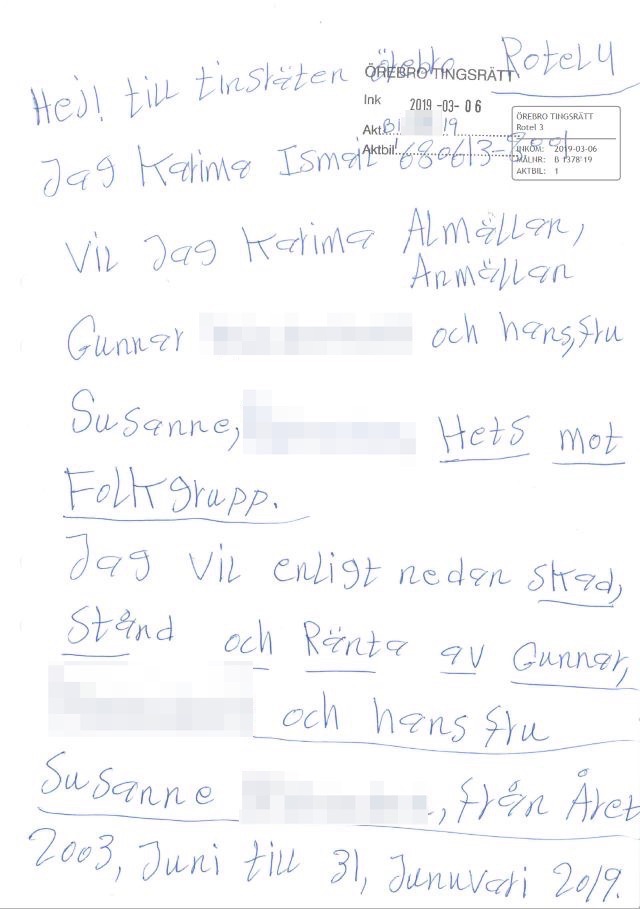 Hej! till tinsräten örebro Rotel 4
ÖREBRO TINGSRÄTT
Ink 2019-03-06
Akt. B 19
Aktbil.
ÖREBRO TINGSRÄTT
Rotel 3
INKOM: 2019-03-06
MÅLNR: B 1378-19
AKTBIL: 1
Jag Karima Ismail 680613-
Vil Jag Karima Almällan,
Anmällan
Gunnar och hans fru
Susanne, Hets mot
Folkgrupp.
Jag vil enligt nedan skad,
Stånd och Ränta av Gunnar,
och hans fru
Susanne , från Året
2003, Juni till 31, Junuvari 2019.